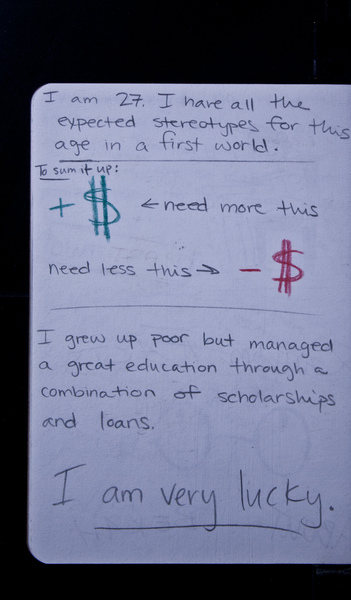 I am 27. I have all the
expected stereotypes for this
age in a first world.
To sum it up:
+ $ ← need more this
need less this → - $
I grew up poor but managed
a great education through a
combination of scholarships
and loans.
I am very lucky.